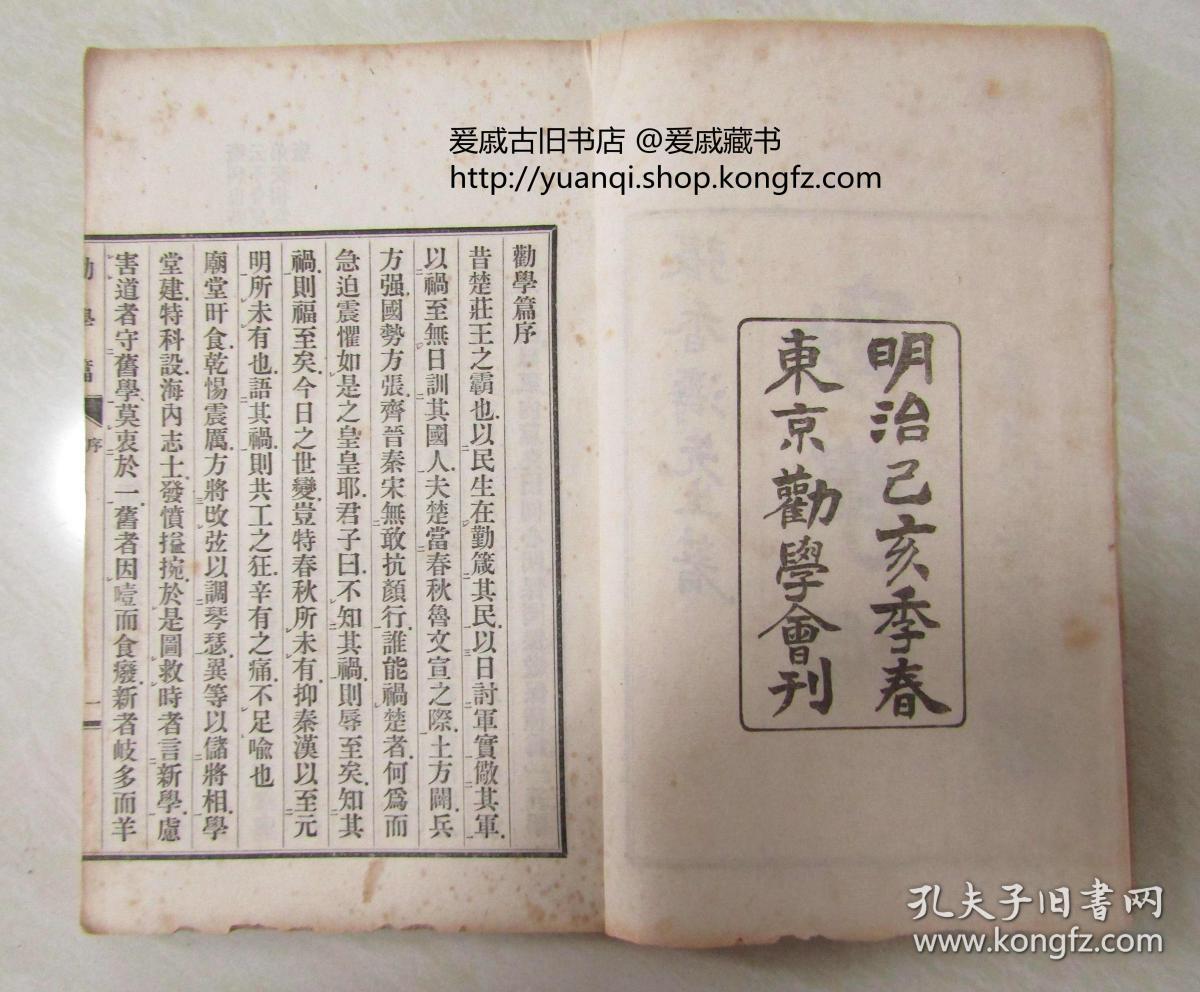 爰戚古旧书店 @爰戚藏书
http://yuanqi.shop.kongfz.com
明治己亥季春
東京勸學會刊
勸學篇序
昔楚莊王之霸也以民生在勤箴其民以日討軍實儆其軍
以禍至無日訓其國人夫楚當春秋魯文宣之際土方闢兵
方强國勢方張齊晉秦宋無敢抗顏行誰能禍楚者何爲而
急迫震懼如是之皇皇耶君子曰不知其禍則辱至矣知其
禍則福至矣今日之世變豈特春秋所未有抑秦漢以至元
明所未有也語其禍則共工之狂辛有之痛不足喩也
廟堂旰食乾惕震厲方將改弦以調琴瑟異等以儲將相學
堂建特科設海內志士發憤搤捥於是圖救時者言新學慮
害道者守舊學莫衷於一舊者因噎而食廢新者歧多而羊
序
一
孔夫子旧书网
www.kongfz.com